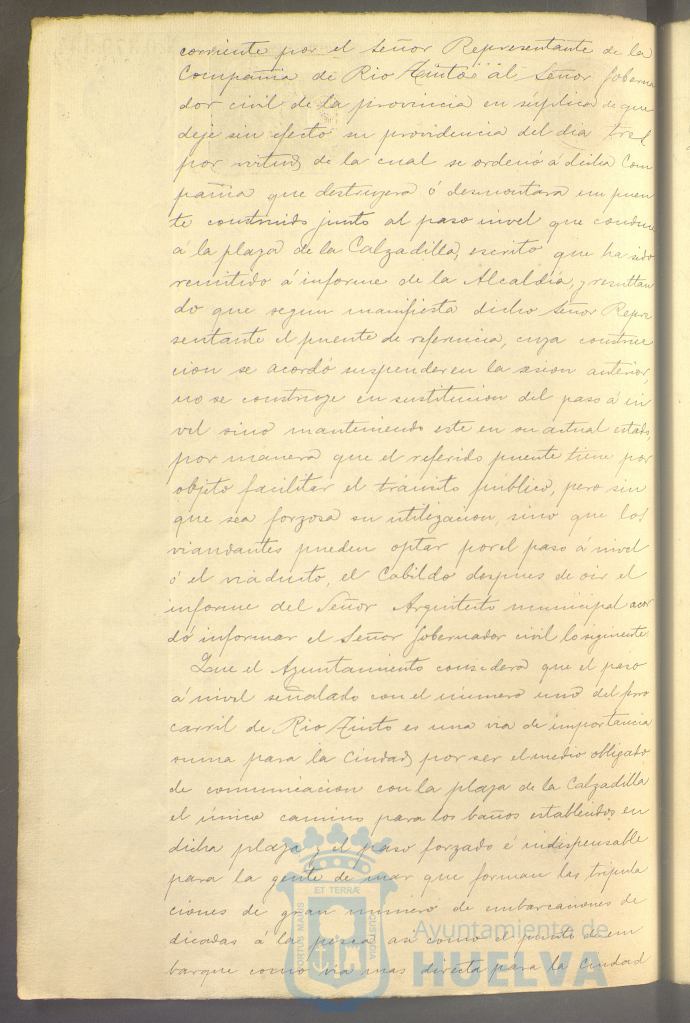 corriente por el Señor Representante de la
Compañia de Rio Tinto al Señor Goberna
dor civil de la provincia en súplica de que
deje sin efecto su providencia del dia tres
por virtud de la cual se ordenó á dicha Com
pañia que destruyera ó desmontara un puen
te construido junto al paso nivel que conduce
á la playa de la Calzadilla, escrito que ha sido
remitido á informe de la Alcaldia, y resultan
do que segun manifiesta dicho Señor Repre
sentante el puente de referencia, cuya construc
cion se acordó suspender en la sesion anterior,
no se construye en sustitucion del paso á ni
vel sino manteniendo este en su actual estado,
por manera que el referido puente tiene por
objeto facilitar el tránsito público, pero sin
que sea forzosa su utilizacion, sino que los
viandantes pueden optar por el paso á nivel
ó el viaducto, el Cabildo despues de oir el
informe del Señor Arquitecto municipal acor
dó informar el Señor Gobernador civil lo siguiente
Que el Ayuntamiento considera que el paso
á nivel señalado con el número uno del ferro
carril de Rio Tinto es una via de importancia
suma para la Ciudad, por ser el medio obligado
de comunicacion con la playa de la Calzadilla
el único camino para los baños establecidos en
dicha playa y el paso forzado é indispensable
para la gente de mar que forman las tripula
ciones de gran número de embarcaciones de
dicadas á la pesca asi como el punto de em
barque como via mas directa para la Ciudad
PORTUS MARIS ET TERRÆ CUSTODIA
Ayuntamiento de
HUELVA